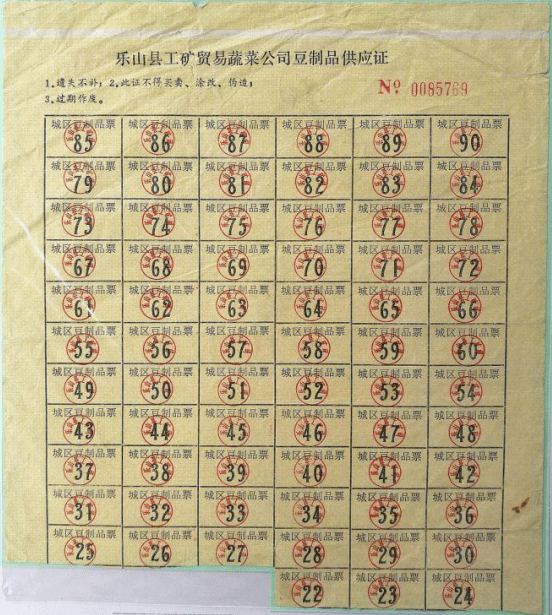 乐山县工矿贸易蔬菜公司豆制品供应证
1.遗失不补；2.此证不得买卖、涂改、伪造；
3.过期作废。
№ 0085769
城区豆制品票 城区豆制品票 城区豆制品票 城区豆制品票 城区豆制品票 城区豆制品票
85 86 87 88 89 90
城区豆制品票 城区豆制品票 城区豆制品票 城区豆制品票 城区豆制品票 城区豆制品票
79 80 81 82 83 84
城区豆制品票 城区豆制品票 城区豆制品票 城区豆制品票 城区豆制品票 城区豆制品票
73 74 75 76 77 78
城区豆制品票 城区豆制品票 城区豆制品票 城区豆制品票 城区豆制品票 城区豆制品票
67 68 69 70 71 72
城区豆制品票 城区豆制品票 城区豆制品票 城区豆制品票 城区豆制品票 城区豆制品票
61 62 63 64 65 66
城区豆制品票 城区豆制品票 城区豆制品票 城区豆制品票 城区豆制品票 城区豆制品票
55 56 57 58 59 60
城区豆制品票 城区豆制品票 城区豆制品票 城区豆制品票 城区豆制品票 城区豆制品票
49 50 51 52 53 54
城区豆制品票 城区豆制品票 城区豆制品票 城区豆制品票 城区豆制品票 城区豆制品票
43 44 45 46 47 48
城区豆制品票 城区豆制品票 城区豆制品票 城区豆制品票 城区豆制品票 城区豆制品票
37 38 39 40 41 42
城区豆制品票 城区豆制品票 城区豆制品票 城区豆制品票 城区豆制品票 城区豆制品票
31 32 33 34 35 36
城区豆制品票 城区豆制品票 城区豆制品票 城区豆制品票 城区豆制品票 城区豆制品票
25 26 27 28 29 30
城区豆制品票 城区豆制品票 城区豆制品票
22 23 24